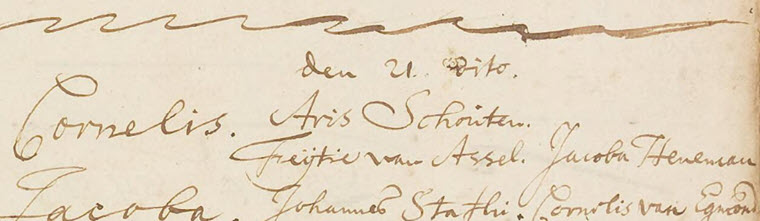 den 21. dito.
Cornelis. Aris Schouten.
Feijtie van Assel. Jacoba Heneman
Jacoba. Johannes Stathi. Cornelis van Egmond